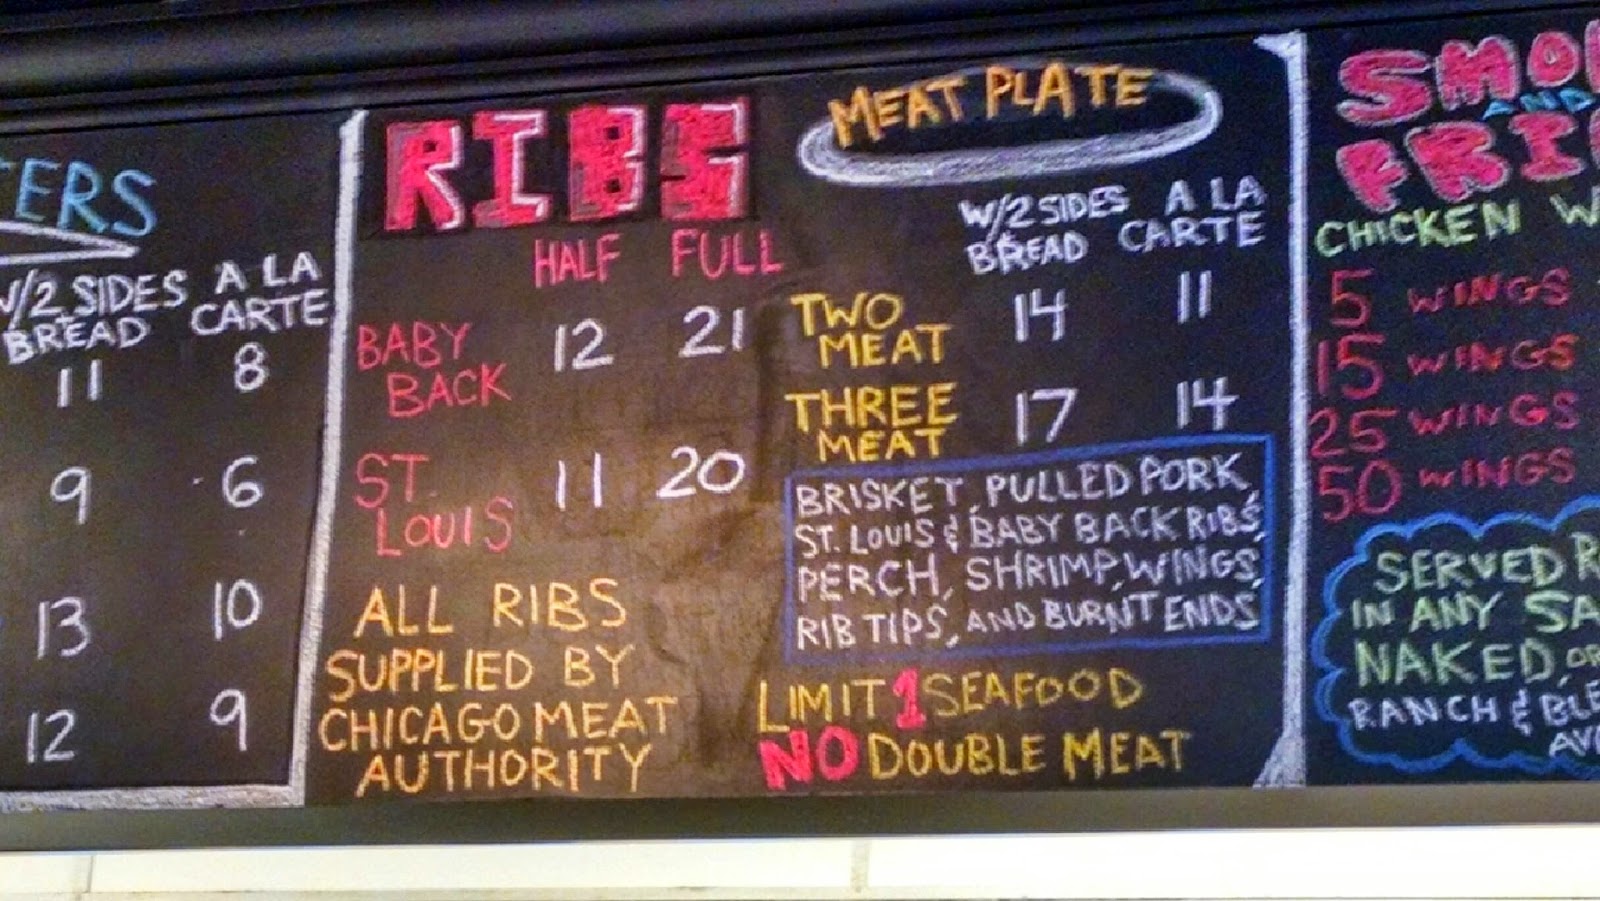 W/2 SIDES
BREAD
A LA
CARTE
11 8
9 6
13 10
12 9
RIBS
HALF FULL
BABY
BACK
12 21
ST.
LOUIS
11 20
ALL RIBS
SUPPLIED BY
CHICAGO MEAT
AUTHORITY
MEAT PLATE
W/2 SIDES
BREAD
A LA
CARTE
TWO
MEAT
14 11
THREE
MEAT
17 14
BRISKET, PULLED PORK,
ST. LOUIS & BABY BACK RIBS,
PERCH, SHRIMP, WINGS,
RIB TIPS, AND BURNT ENDS
LIMIT 1 SEAFOOD
NO DOUBLE MEAT
AND
CHICKEN
5 WINGS
15 WINGS
25 WINGS
50 WINGS
SERVED
IN ANY
NAKED, OR
RANCH &